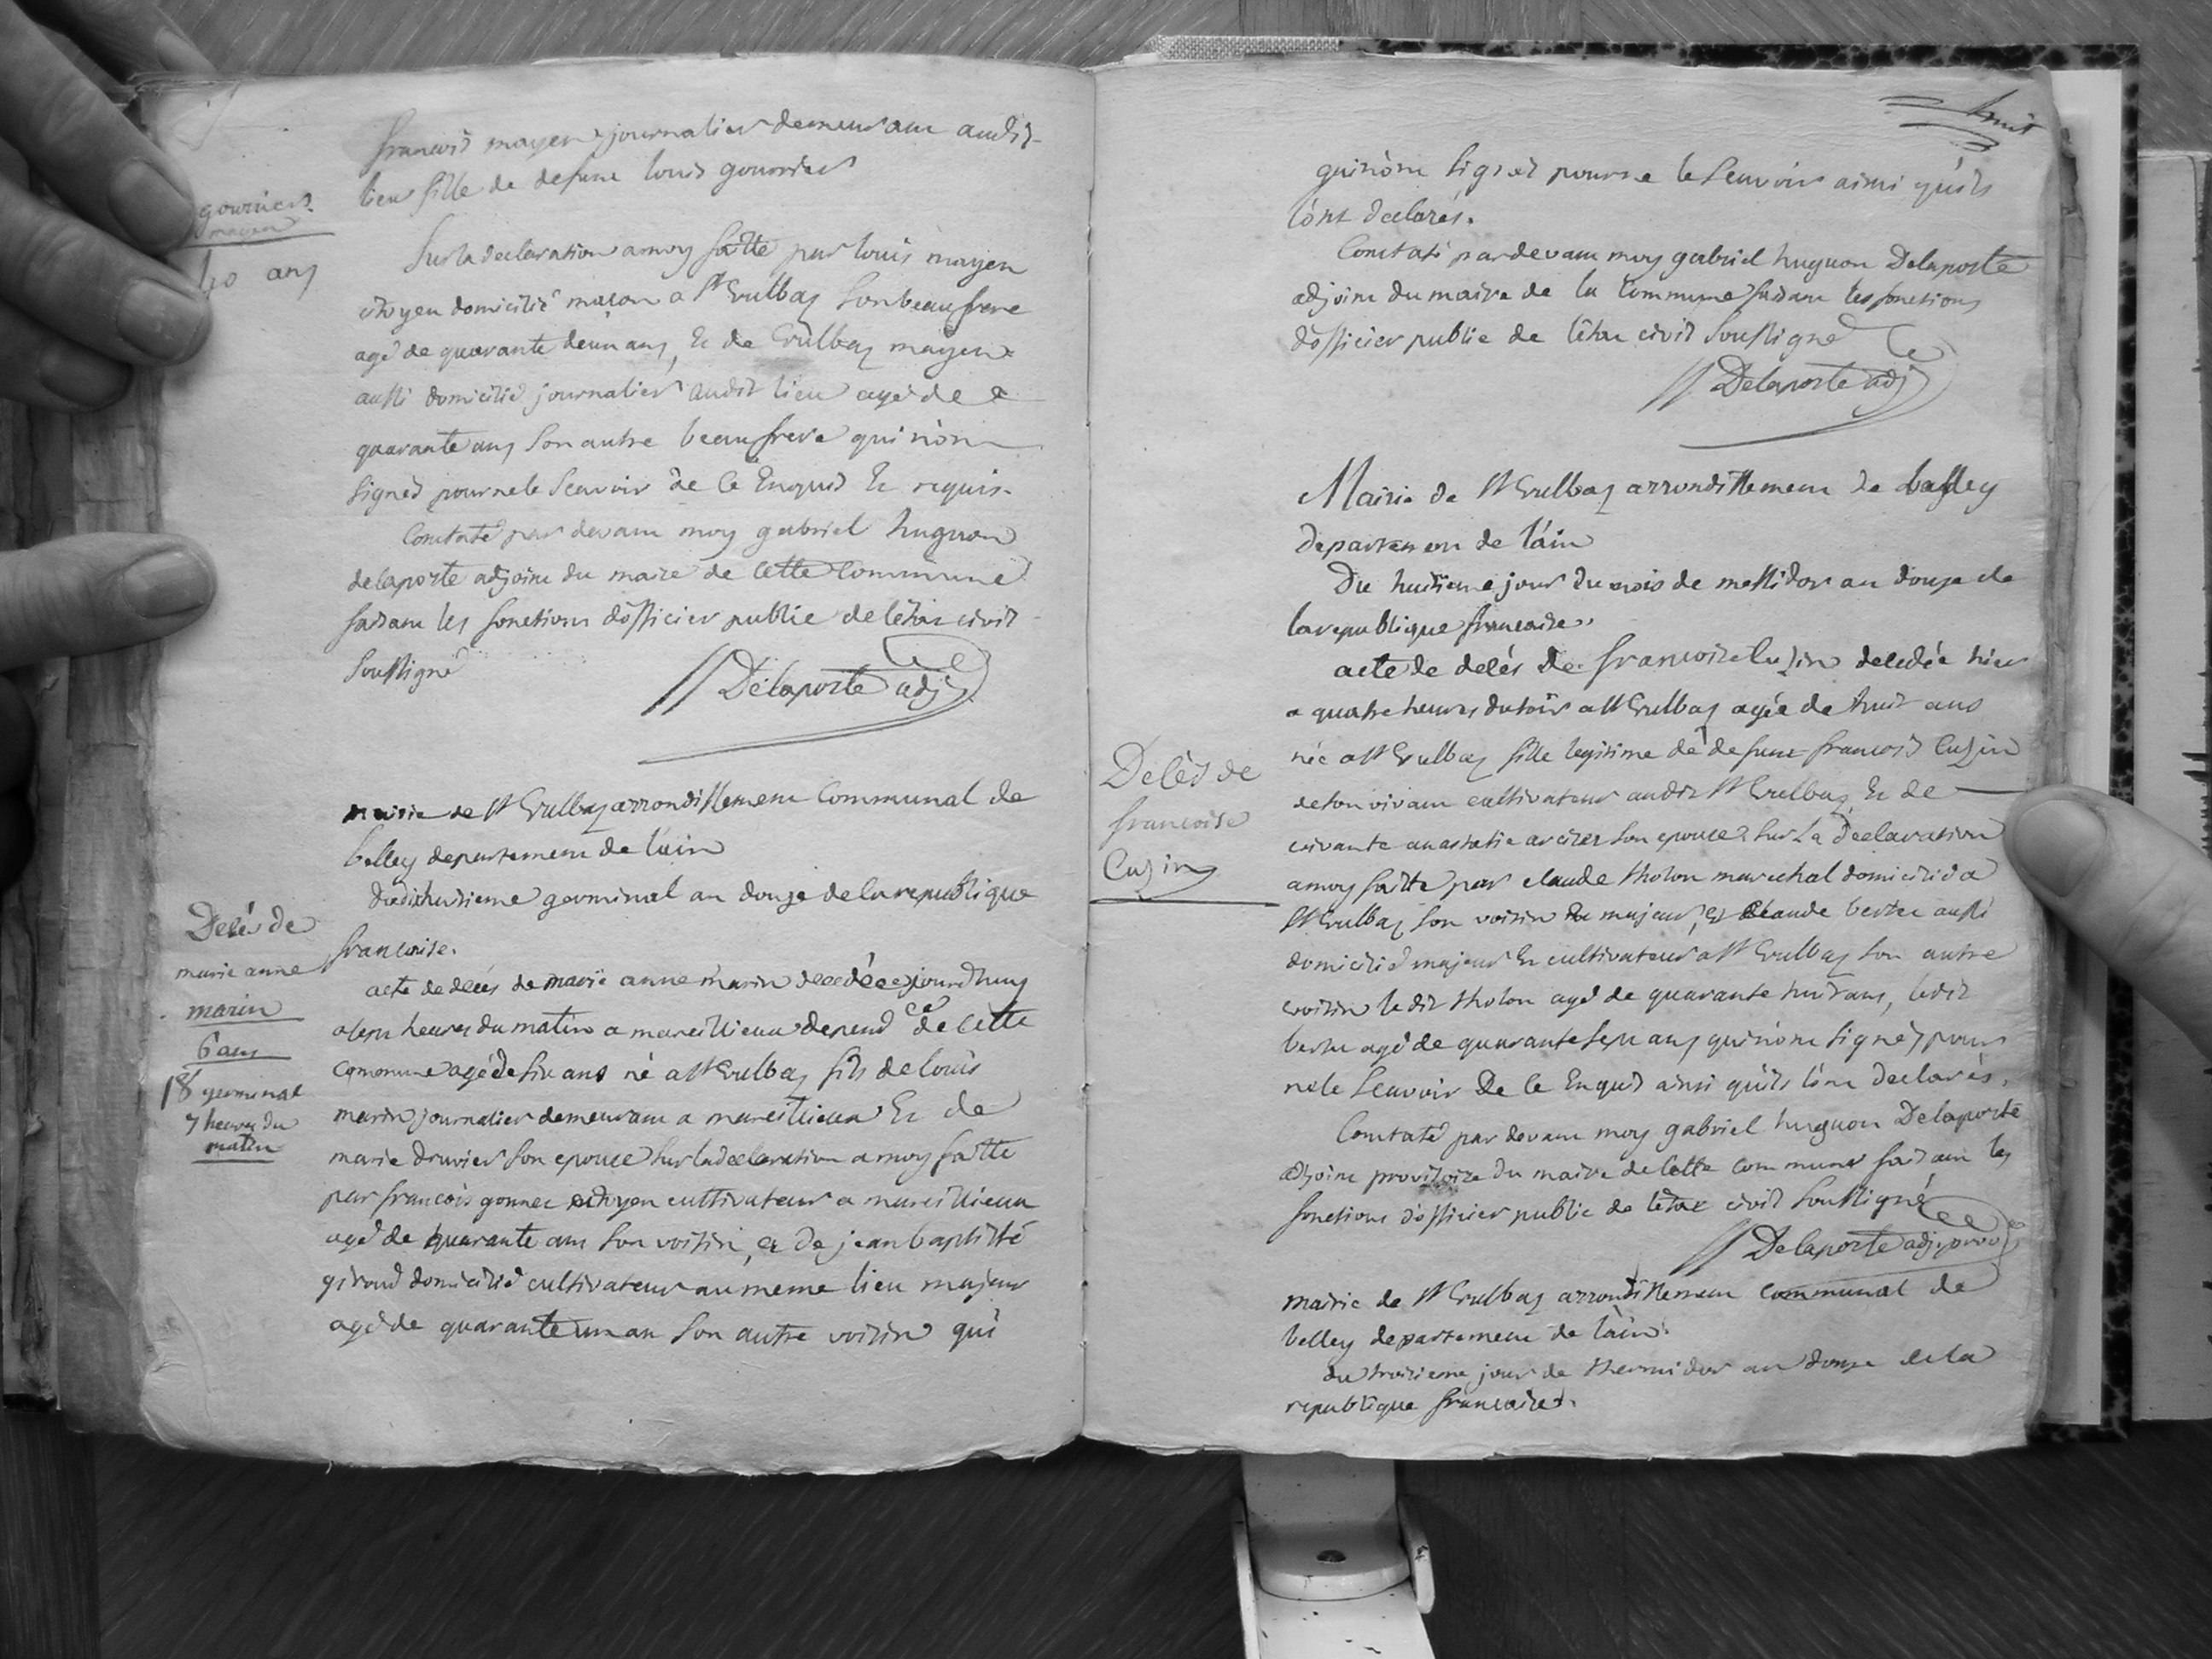 francois mayen journalier demeurant audit
lieu fille de defunt louis gourrier
gourrier
mayen
40 ans
Sur la declaration a moy faitte par louis mayen
citoyen domicilié macon a St Erulbas son beaufrere
agé de quarante deux ans, Et de Erulbas mayen
aussi domicilié journalier audit lieu agé de
quarante ans son autre beaufrere qui n'ont
signes pour ne le scavoir de ce Enquis Et requis.
Constaté par devant moy gabriel huguon
delaporte adjoint du maire de cette commune
faisant les fonctions d'officier public de l'état civil
soussigné
Delaporte adj
mairie de St Erulbas arrondissement communal de
belley departement de l'ain
du dixhuitieme germinal an douze de la republique
francoise.
Decés de
marie anne
marin
6 ans
18 germinal
7 heures du
matin
acte de decés de marie anne marin decedée ce jourdhuy
a sept heures du matin a mareillieux depend ce de cette
commune agé de six ans né a St Erulbas fils de louis
marin journalier demeurant a mareillieux Et de
marie druvier son epouse sur la declaration a moy faitte
par francois gonnet citoyen cultivateur a mareillieux
agé de quarante ans son voisin, et de jean baptiste
giroud domicilié cultivateur au meme lieu majeur
agé de quarante un an son autre voisin qui
huit
qui n'ont signes pour ne le scavoir ainsi qu'ils
l'ont declarés.
Constaté pardevant moy gabriel huguon Delaporte
adjoint du maire de la commune faisant les fonctions
d'officier public de l'état civil soussigné
Delaporte adj
Mairie de St Erulbas arrondissement de belley
departement de l'ain
Du huitieme jour du mois de messidor an douze de
la republique francoise.
acte de decés de francoise Cuzin decedée hier
a quatre heures du soir a St Erulbas agée de huit ans
née a St Erulbas fille legitime de defunt francois Cuzin
de son vivant cultivateur audit St Erulbas, Et de
Decés de
francoise
Cuzin
vivante anastasie arcizet son epouse. sur la declaration
a moy faitte par claude tholon marechal domicilié a
St Erulbas son voisin majeur, et Claude bertet aussi
domicilié majeur Et cultivateur a St Erulbas son autre
voisin ledit tholon agé de quarante huit ans, ledit
bertet agé de quarante sept ans qui n'ont signés pour
ne le scavoir De ce Enquis ainsi qu'ils l'ont declarés.
Constaté par devant moy gabriel huguon Delaporte
adjoint provisoire du maire de cette commune faisant les
fonctions d'officier public de l'état civil soussigné
Delaporte adj. prov
mairie de St Erulbas arrondissement communal de
belley departement de l'ain.
du troisieme jour de thermidor an douze de la
republique francaise.